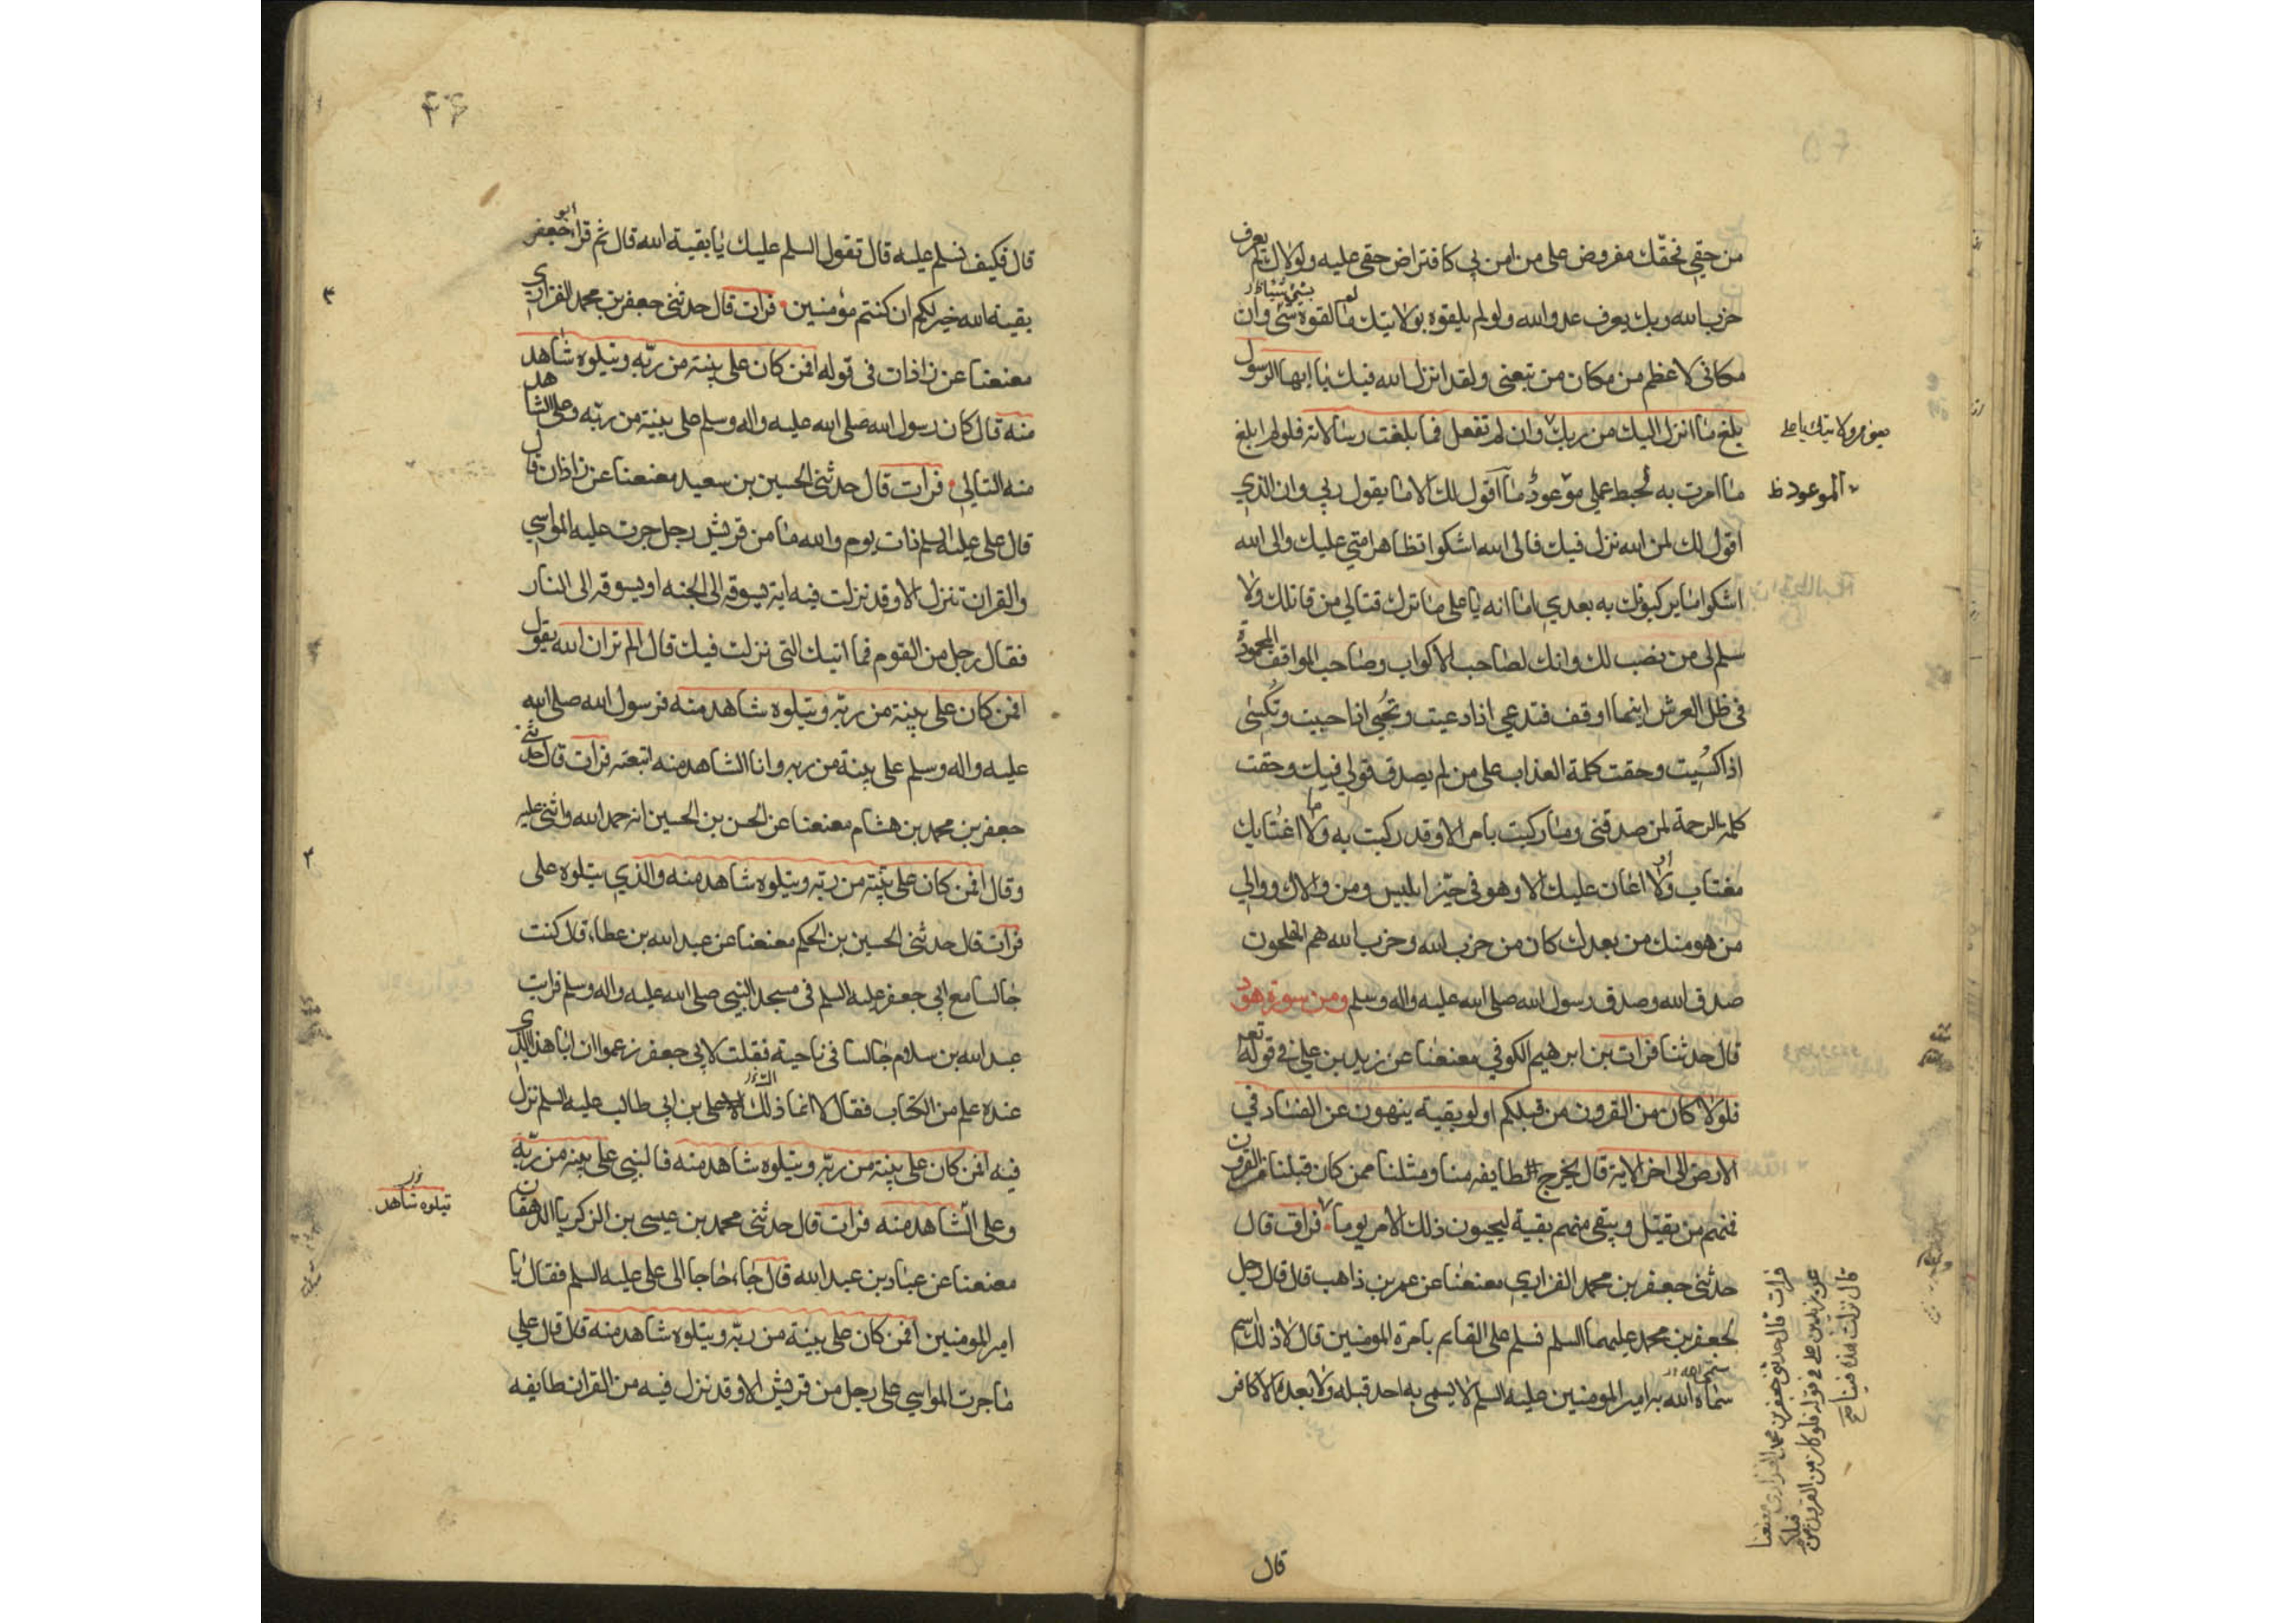 من حقي فحقك مفروض على من امن بي كافتراض حقي عليه ولولاك لم يعرف
حزب الله وبك يعرف عدو الله ولو لم يلقوه بولايتك ما لقوه بشئ وان
مكاني لاعظم من مكان من تبعني ولقد انزل الله فيك يا ايها الرسول
بلغ ما انزل اليك من ربك وان لم تفعل فما بلغت رسالاته فلو لم ابلغ
ما امرت به لحبط عملي موعودٌ ما اقول لك الا ما يقول ربي وان الذي
اقول لك لمن الله نزل فيك فالى الله اشكوا تظاهر امتي عليك والى الله
اشكوا ما يركبونك به بعدي اما انه يا على ما ترك قتالي من قاتلك ولا
سلم لي من نصب لك وانك لصاحب الاكواب وصاحب المواقف المحمودة
في ظل العرش اينما اوقف فتدعى اذا دعيت وتحيى اذا حييت وتكسى
اذا كسيت وحقت كلمة العذاب على من لم يصدق قولي فيك وحقت
كلمة الرحمة لمن صدقني وما ركبت بامر الا وقد ركبت به وما اغتابك
مغتاب ولا اعان عليك الا وهو في حيز ابليس ومن والاك ووالى
من هو منك من بعدك كان من حزب الله وحزب الله هم المفلحون
صدق الله وصدق رسول الله صلى الله عليه واله وسلم ومن سورة هود
قال حدثنا فرات بن ابرهيم الكوفي معنعنا عن زيد بن علي في قوله تعه
فلولا كان من القرون من قبلكم اولو بقية ينهون عن الفساد في
الارض الى اخر الاية قال يخرج الطايفه منا ومثلنا ممن كان قبلنا من القرون
فمنهم من يقتل ويبقى منهم بقية ليحيون ذلك الامر يوما فرات قال
حدثنى جعفر بن محمد الفزاري معنعنا عن عمر بن ذاهب قال قال رجل
لجعفر بن محمد عليهما السلم نسلم على القايم بامرة المومنين قال لا ذلك اسم
سماه الله به امير المومنين عليه السلم لا يسمى به احد قبله ولا بعده الا كافر
يعني ولايتك يا على
الموعود ظ
فرات قال حدثنى جعفر بن محمد الفزارى معنعنا
عن زيد بن على في قوله فلولا كان من القرون من قبلكم
قال نزلت هذه فينا صح
قال
قال فكيف نسلم عليه قال تقول السلم عليك يا بقية الله قال ثم قرا ابو جعفر
بقية الله خير لكم ان كنتم مؤمنين فرات قال حدثنى جعفر بن محمد الفزاري
معنعنا عن زاذات في قوله افمن كان على بينة من ربه ويتلوه شاهد
منه قال كان رسول الله صلى الله عليه واله وسلم على بينة من ربه وعلى الشاهد
منه التالي فرات قال حدثنى الحسين بن سعيد معنعنا عن زاذان قال
قال على عليه السلم ذات يوم والله ما من قريش رجل جرت عليه المواسي
والقران تنزل الا وقد نزلت فيه اية يسوقه الى الجنه او يسوقه الى النار
فقال رجل من القوم فما ايتك التى نزلت فيك قال الم تر ان الله يقول
افمن كان على بينة من ربه ويتلوه شاهد منه فرسول الله صلى الله
عليه واله وسلم على بينة من ربه وانا الشاهد منه اتبعته فرات قال حدثنى
جعفر بن محمد بن هشام معنعنا عن الحسن بن الحسين انه حمد الله واثنى عليه
وقال افمن كان على بينة من ربه ويتلوه شاهد منه والذي يتلوه على
فرات قال حدثنى الحسين بن الحكم معنعنا عن عبد الله بن عطاء قال كنت
جالسا مع ابي جعفر عليه السلم في مسجد النبي صلى الله عليه واله وسلم فرايت
عبد الله بن سلام جالسا في ناحية فقلت لابي جعفر زعموا ان ابا هذا الذي
عنده علم من الكتاب فقال لا انما ذلك على بن ابي طالب عليه السلم نزل
فيه افمن كان على بينة من ربه ويتلوه شاهد منه فالنبي على بينه من ربه
وعلى الشاهد منه فرات قال حدثنى محمد بن عيسى بن الزكريا الدهقان
معنعنا عن عباد بن عبد الله قال جاء حاجا الى على عليه السلم فقال يا
امير المومنين افمن كان على بينة من ربه ويتلوه شاهد منه قال قال علي
ما جرت المواسي على رجل من قريش الا وقد نزل فيه من القران طايفه
يتلوه شاهد